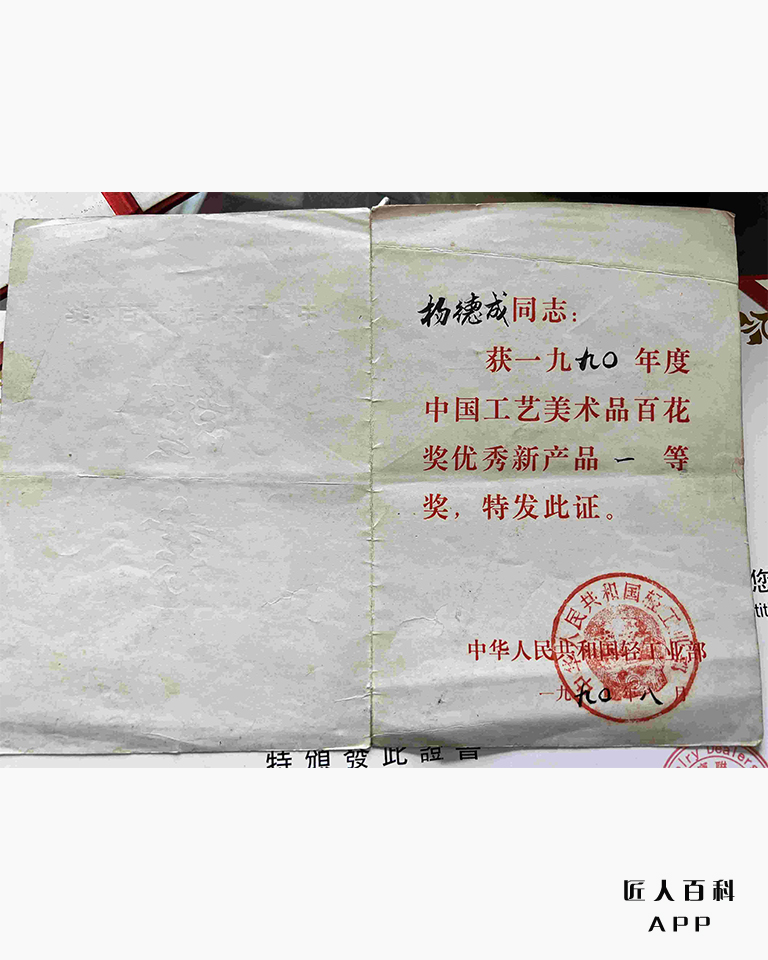 杨德成同志：
获一九九〇年度
中国工艺美术品百花
奖优秀新产品 一 等
奖，特发此证。
中华人民共和国轻工业部
中华人民共和国轻工业部
一九九〇年八 日
特頒發此證書
您
tit
lry Dealers
匠人百科
APP